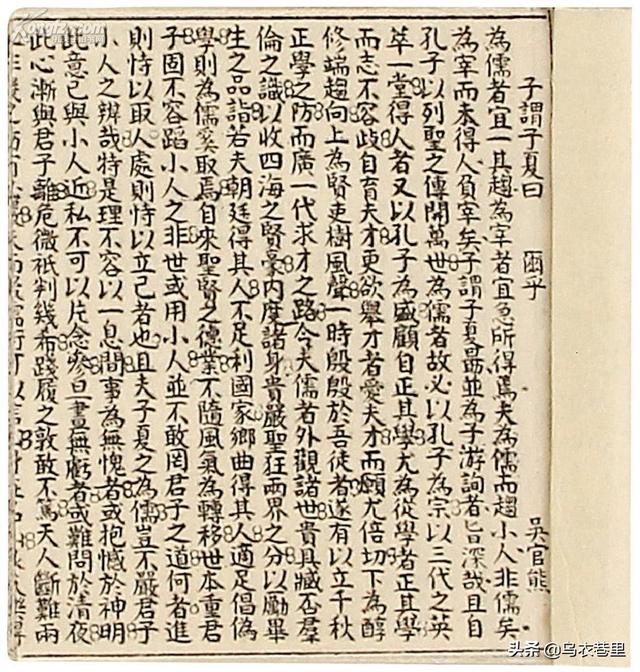 子謂子夏曰　圅乎　吳官熊
為儒者宜一其趨為宰者宜急所得焉夫為儒而趨小人非儒矣
為宰而未得人負宰矣子謂子夏曷並為子游詢者旨深哉且自
孔子以列聖之傳開萬世為儒者故必以孔子為宗以三代之英
萃一堂得人者又以孔子為盛顧自正其學尤為從學者正其學
而志不容歧自育夫才更欲舉才者愛夫才而願尤倍切下為醇
修端趨向上為賢吏樹風聲一時殷殷於吾徒者遂有以立千秋
正學之防而廣一代求才之路今夫儒者外觀諸世貴具臧否羣
倫之識以收四海之賢豪內度諸身貴嚴聖狂兩界之分以勵畢
生之品詣若夫朝廷得其人不足利國家鄉曲得其人適足倡偽
學則為儒奚取焉自來聖賢之德業不隨風氣為轉移世本重君
子固不容蹈小人之非世或用小人並不敢罔君子之道何者進
則恃以取人處則恃以立己者也且夫子夏之為儒豈不嚴君子
小人之辨哉特是理不容以一息間事為無愧者或抱憾於神明
此意已與小人近私不可以片念參旦晝無虧者或難問於清夜
此心漸與君子離危微祇判幾希踐履之敦敢不篤天人斷難兩